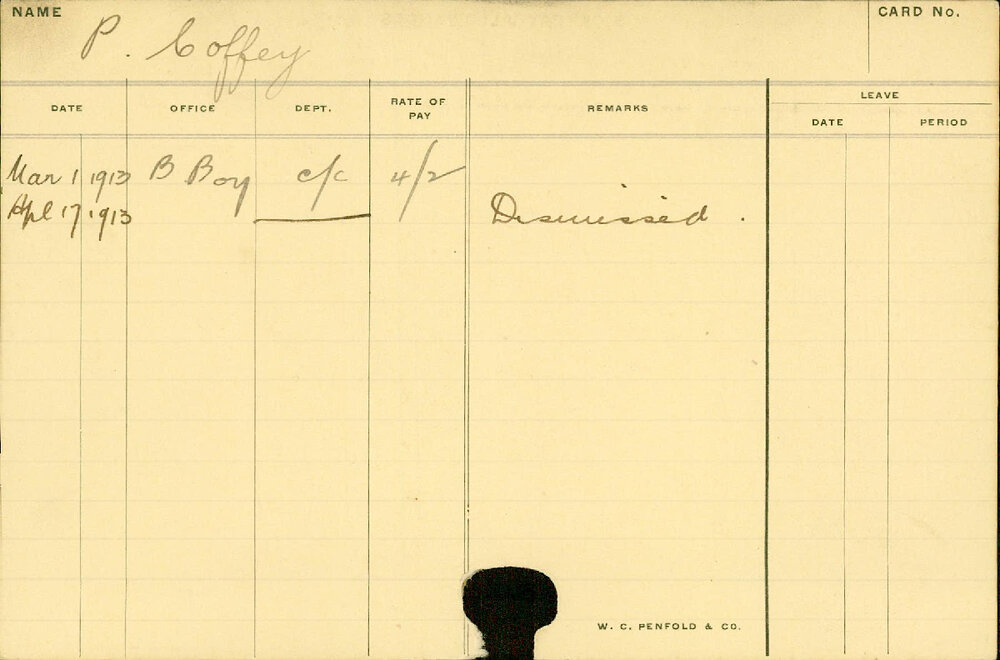 NAME
P. Coffey
CARD No.
DATE OFFICE DEPT. RATE OF PAY REMARKS LEAVE
DATE PERIOD
Mar 1 1913 B Boy c/c 4/2
Apl 17 1913 Dismissed.
W. C. PENFOLD & CO.